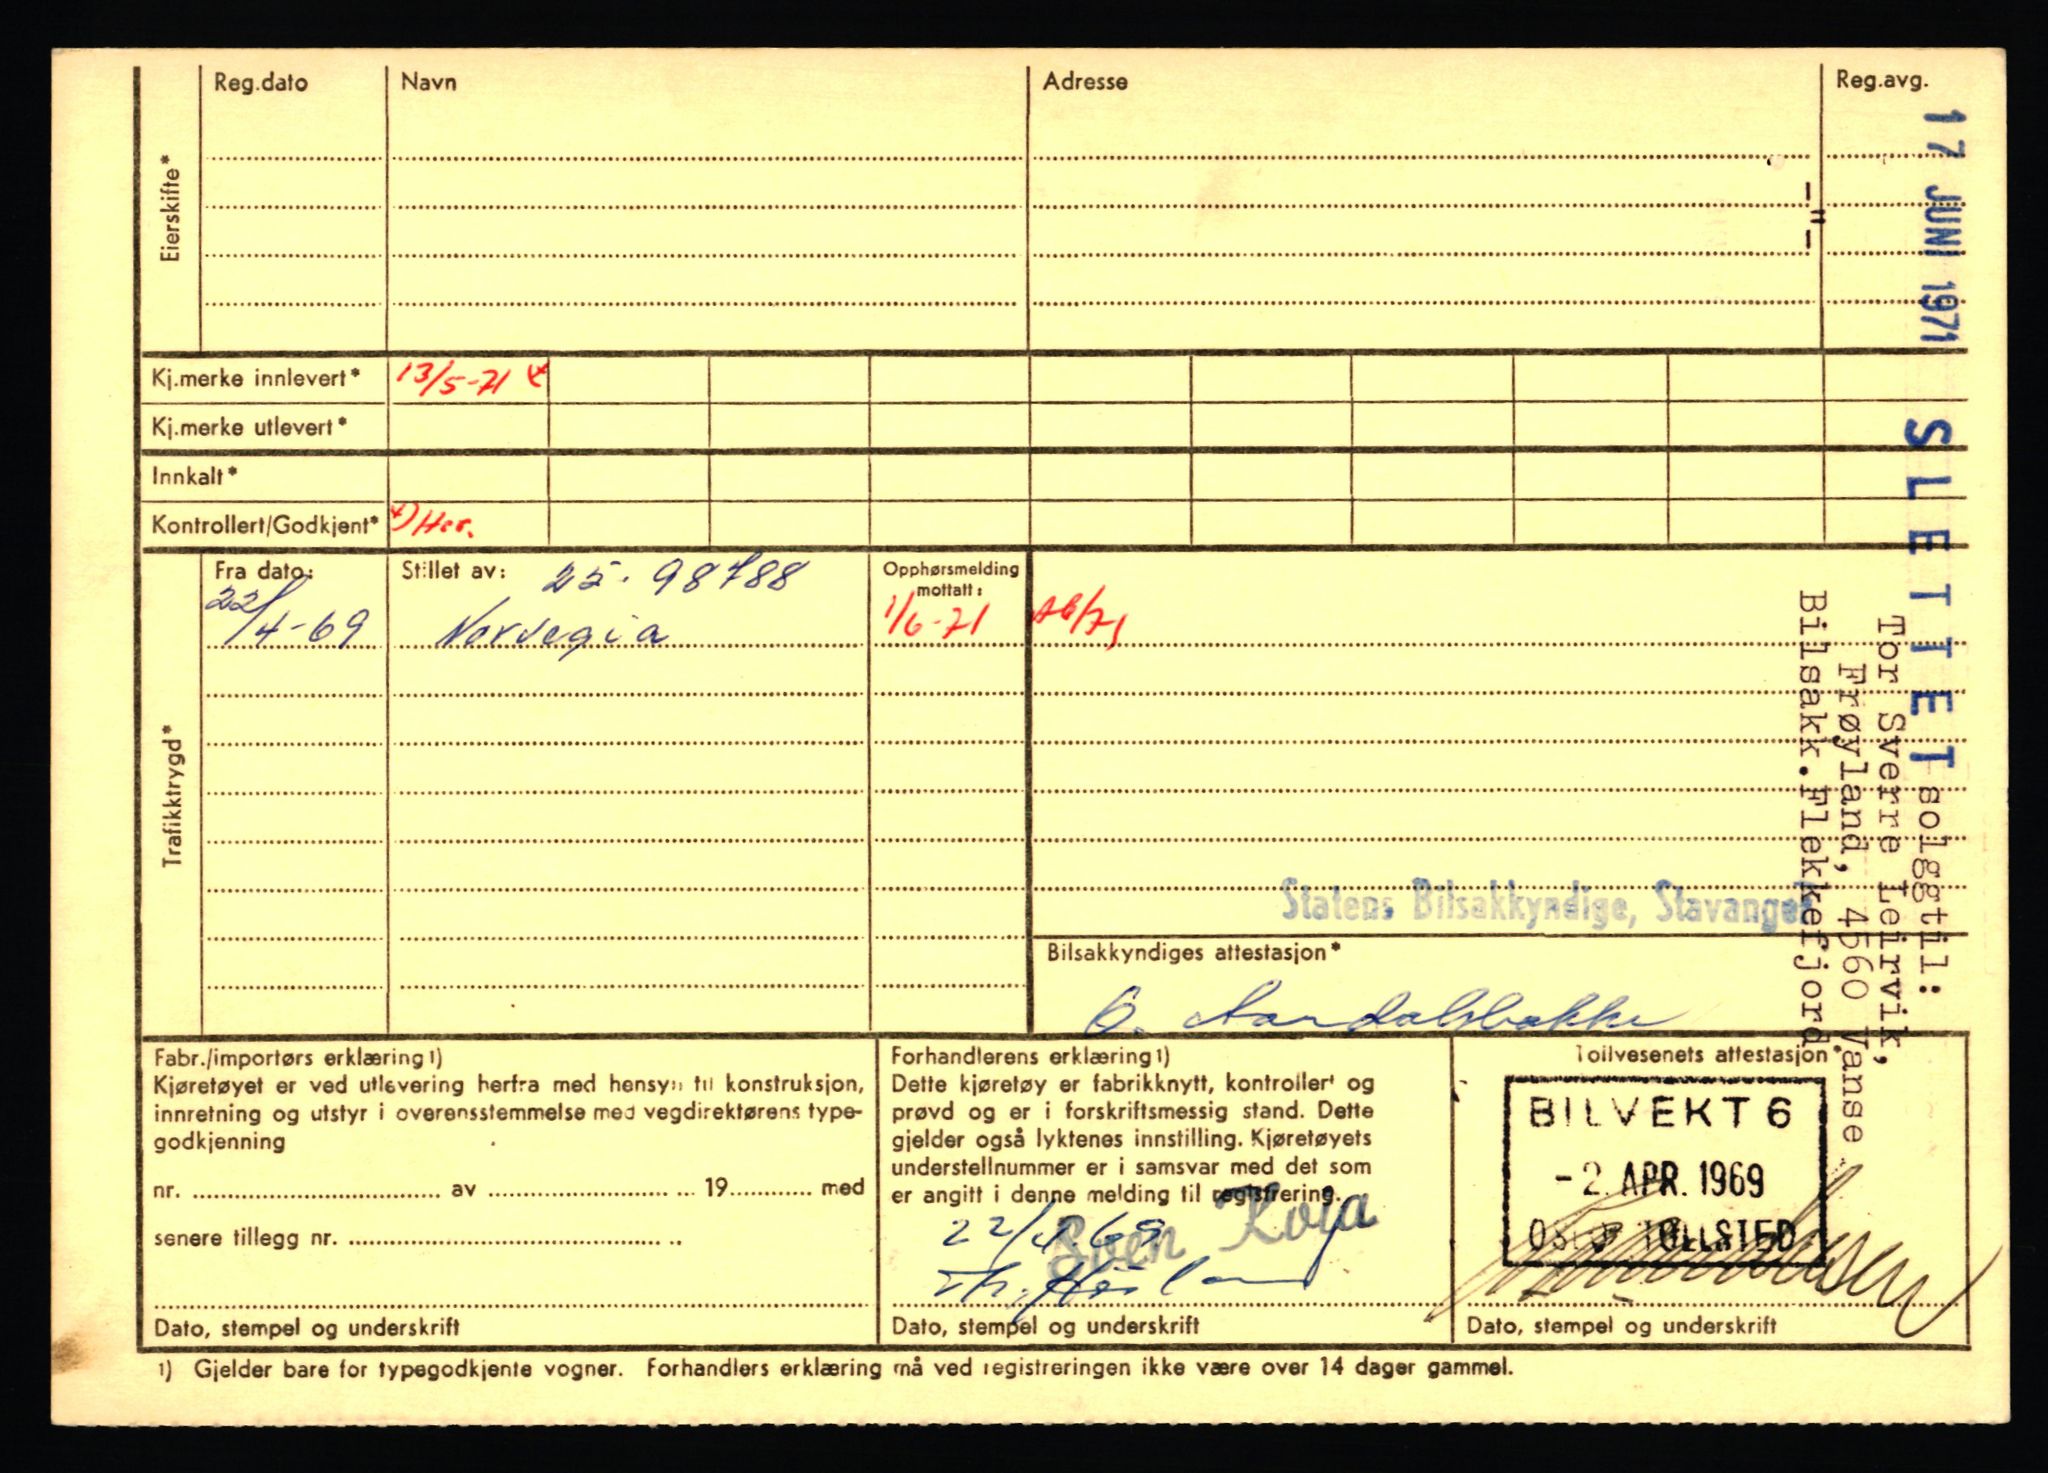 Reg.dato Navn Adresse Reg.avg.
Eierskifte*
-"-
17 JUNI 1971 SLETTET solggtil:
Tor Sverre Leirvik,
Frøyland, 4560 Vanse
Bilsakk.Flekkefjord
Kj.merke innlevert* 13/5-71
Kj.merke utlevert*
Innkalt*
Kontrollert/Godkjent* Her.
Trafikktrygd*
Fra dato: Stillet av: 25. 98788 Opphørsmelding
mottatt:
22/4-69 Norvegia 1/6-71
Statens Bilsakkyndige, Stavanger
Bilsakkyndiges attestasjon*
Fabr./importørs erklæring 1)
Kjøretøyet er ved utlevering herfra med hensyn til konstruksjon,
innretning og utstyr i overensstemmelse med vegdirektørens type-
godkjenning
nr. ........ av ........ 19........ med
senere tillegg nr. ........
Dato, stempel og underskrift
Forhandlerens erklæring 1)
Dette kjøretøy er fabrikknytt, kontrollert og
prøvd og er i forskriftsmessig stand. Dette
gjelder også lyktenes innstilling. Kjøretøyets
understellnummer er i samsvar med det som
er angitt i denne melding til registrering.
22/4.69
Dato, stempel og underskrift
Tollvesenets attestasjon*
BILVEKT 6
-2. APR. 1969
OSLO TOLLSTED
Dato, stempel og underskrift
1) Gjelder bare for typegodkjente vogner. Forhandlers erklæring må ved registreringen ikke være over 14 dager gammel.